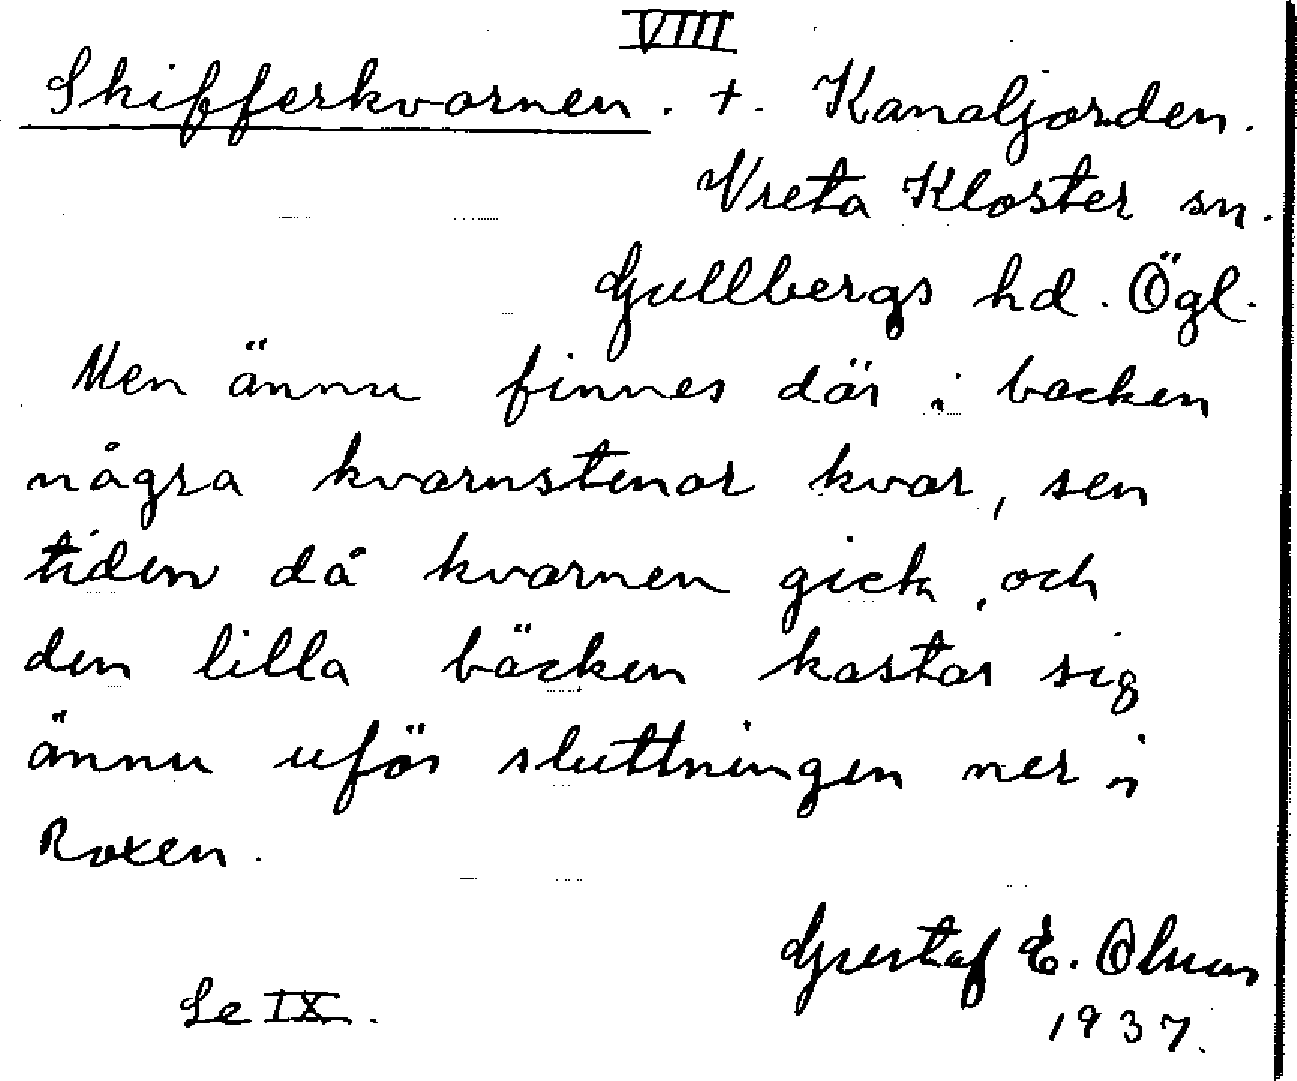 VIII
Skifferkvarnen. +. Kanaljorden.
Vreta Kloster sn.
Gullbergs hd. Ögl.
Men ännu finnes där i backen
några kvarnstenar kvar, sen
tiden då kvarnen gick, och
den lilla bäcken kastar sig
ännu uför sluttningen ner i
Roxen.
Gustaf E. Olsson
1937.
Se IX.